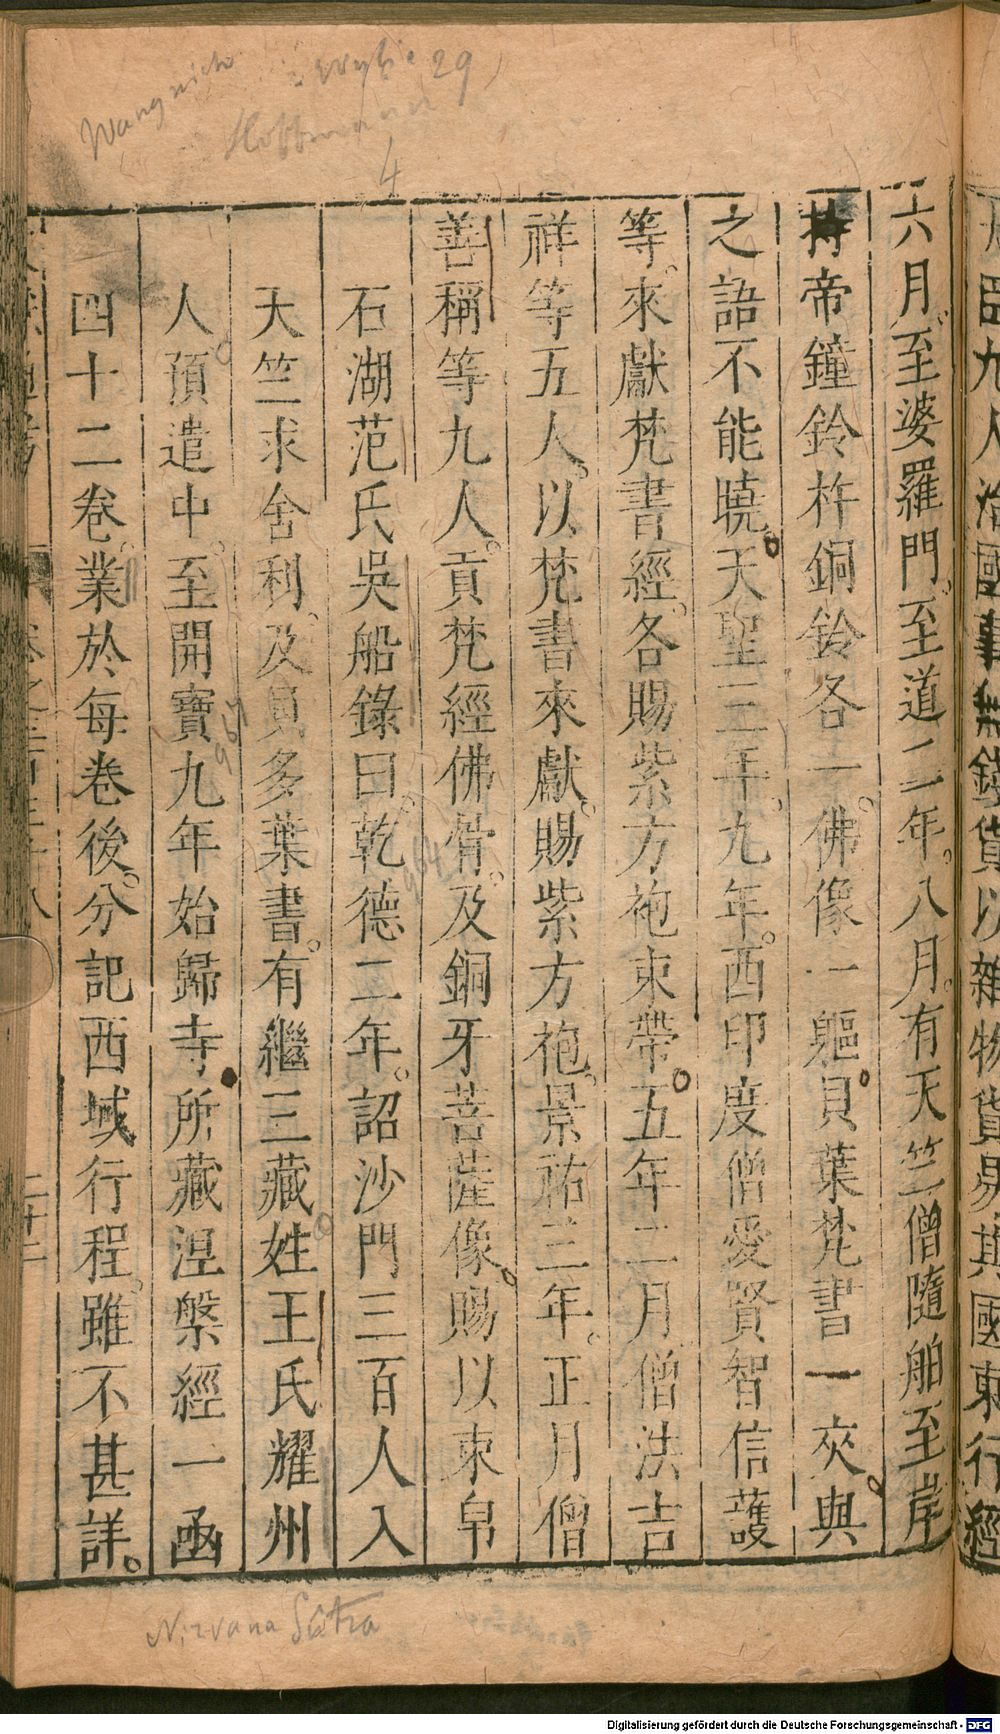 Wylie 29
Hoffmann
4
六月至婆羅門至道二年八月有天竺僧隨舶至岸
持帝鐘鈴杵銅鈴各一佛像一軀貝葉梵書一夾與
之語不能曉天聖二年九年西印度僧愛賢智信護
等來獻梵書經各賜紫方袍束帶五年二月僧法吉
祥等五人以梵書來獻賜紫方袍景祐三年正月僧
善稱等九人貢梵經佛骨及銅牙菩薩像賜以束帛
石湖范氏吳船錄曰乾德二年詔沙門三百人入
天竺求舍利及貝多葉書有繼三藏姓王氏耀州
人預遣中至開寶九年始歸寺所藏涅槃經一函
四十二卷業於每卷後分記西域行程雖不甚詳
964
Nirvana Sûtra
Digitalisierung gefördert durch die Deutsche Forschungsgemeinschaft - DFG